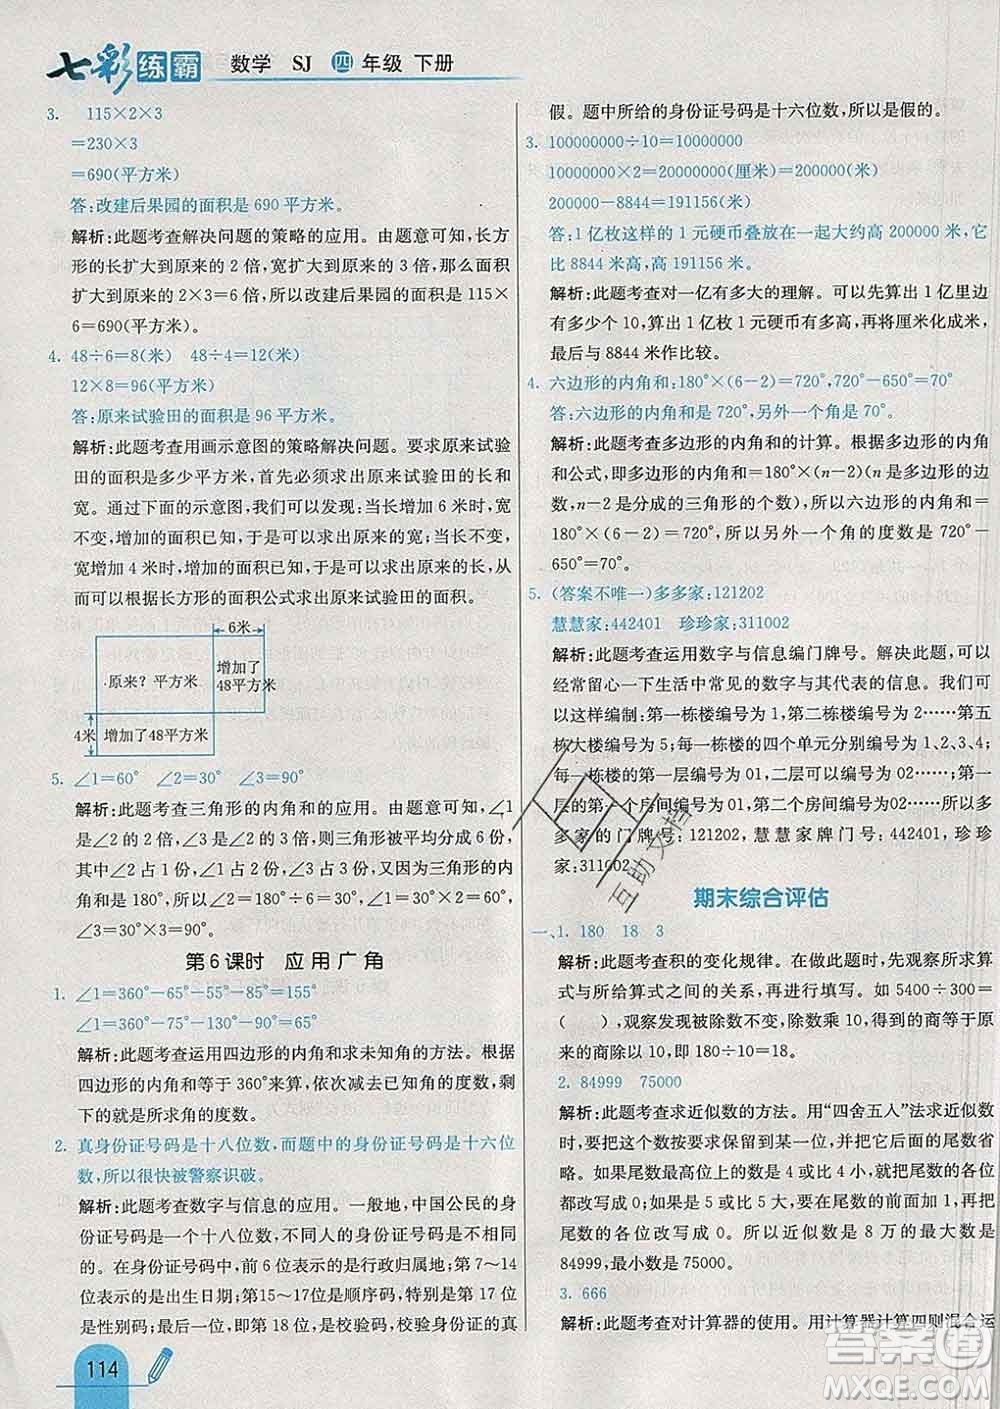 七彩练霸 数学 SJ 四年级 下册
3. 115×2×3
=230×3
=690(平方米)
答:改建后果园的面积是 690 平方米。
解析:此题考查解决问题的策略的应用。由题意可知,长方
形的长扩大到原来的 2 倍,宽扩大到原来的 3 倍,那么面积
扩大到原来的 2×3=6 倍,所以改建后果园的面积是 115×
6=690(平方米)。
4. 48÷6=8(米) 48÷4=12(米)
12×8=96(平方米)
答:原来试验田的面积是 96 平方米。
解析:此题考查用画示意图的策略解决问题。要求原来试验
田的面积是多少平方米,首先必须求出原来试验田的长和
宽。通过下面的示意图,我们可以知道:当长增加 6 米时,宽
不变,增加的面积已知,于是可以求出原来的宽;当长不变,
宽增加 4 米时,增加的面积已知,于是可以求出原来的长,从
而可以根据长方形的面积公式求出原来试验田的面积。
6米
原来? 平方米
增加了
48平方米
4米
增加了48平方米
5. ∠1=60° ∠2=30° ∠3=90°
解析:此题考查三角形的内角和的应用。由题意可知,∠1
是∠2 的 2 倍,∠3 是∠2 的 3 倍,则三角形被平均分成 6 份,
其中∠2 占 1 份,∠1 占 2 份,∠3 占 3 份,又因为三角形的内
角和为 180°,所以∠2=180°÷6=30°,∠1=30°×2=60°,
∠3=30°×3=90°。
第 6 课时 应用广角
1. ∠1=360°-65°-55°-85°=155°
∠1=360°-90°-130°-90°=50°
解析:此题考查运用四边形的内角和求未知角的方法。根据
四边形的内角和等于 360°来算,依次减去已知角的度数,剩
下的就是所求角的度数。
2. 真身份证号码是十八位数,而题中的身份证号码是十六位
数,所以很快被警察识破。
解析:此题考查数字与信息的应用。一般地,中国公民的身
份证号码是一个十八位数,不同人的身份证号码是不同的。
在身份证号码中,前 6 位表示的是行政归属地;第 7～14
位表示的是出生日期;第15～17位是顺序码,特别是第 17 位
是性别码;最后一位,即第 18 位,是校验码,校验身份证的真
114
假。题中所给的身份证号码是十六位数,所以是假的。
3. 100000000÷10=10000000
10000000×2=20000000(厘米)=200000(米)
200000-8844=191156(米)
答:1 亿枚这样的 1 元硬币叠放在一起大约高 200000 米,它
比 8844 米高,高 191156 米。
解析:此题考查对一亿有多大的理解。可以先算出 1 亿里边
有多少个 10,算出 1 亿枚 1 元硬币有多高,再将厘米化成米,
最后与 8844 米作比较。
4. 六边形的内角和:180°×(6-2)=720° 720°-650°=70°
答:六边形的内角和是 720°,另外一个角是 70°。
解析:此题考查多边形的内角和的计算。根据多边形的内角
和公式,即多边形的内角和=180°×(n-2)(n 是多边形的边
数,n-2 是分成的三角形的个数),所以六边形的内角和=
180°×(6-2)=720°,所以另外一个角的度数是 720°-
650°=70°。
5. (答案不唯一)多多家:121202
慧慧家:442401 珍珍家:311002
解析:此题考查运用数字与信息编门牌号。解决此题,可以
经常留心一下生活中常见的数字与其代表的信息。我们可
以这样编制:第一栋楼编号为 1,第二栋楼编号为 2……第五
栋大楼编号为 5;每一栋楼的四个单元分别编号为 1、2、3、4;
每一栋楼的第一层编号为 01,二层可以编号为 02……;每
一层的第一个房间编号为 01,第二个房间为 02……所以多
多家的门牌号:121202,慧慧家牌门号:442401,珍珍
家:311002。
期末综合评估
一、1. 180 18 3
解析:此题考查积的变化规律。在做题时,先观察所求算
式与所给算式之间的关系,再进行填写。如 5400÷300=
( ),观察发现被除数不变,除数乘 10,得到的商等于原
来的商除以 10,即 180÷10=18。
2. 84999 75000
解析:此题考查求近似数的方法。用“四舍五人”法求近似
数时,要看清精确到某一位,并要把某一位后面的尾数省
略。如果尾数最高位上的数比 5 小或是 4,就把尾数的各
位都改写成 0;如果是 5 或比 5 大,要在尾数的前一位加 1,
尾数的各位改写成 0。所以近似数是 8 万的最大数是
84999,最小数是 75000。
3. 666
解析:此题考查对计算器的使用。用计算器计算四则混合运
互助文档
答案圈
MXQE.COM